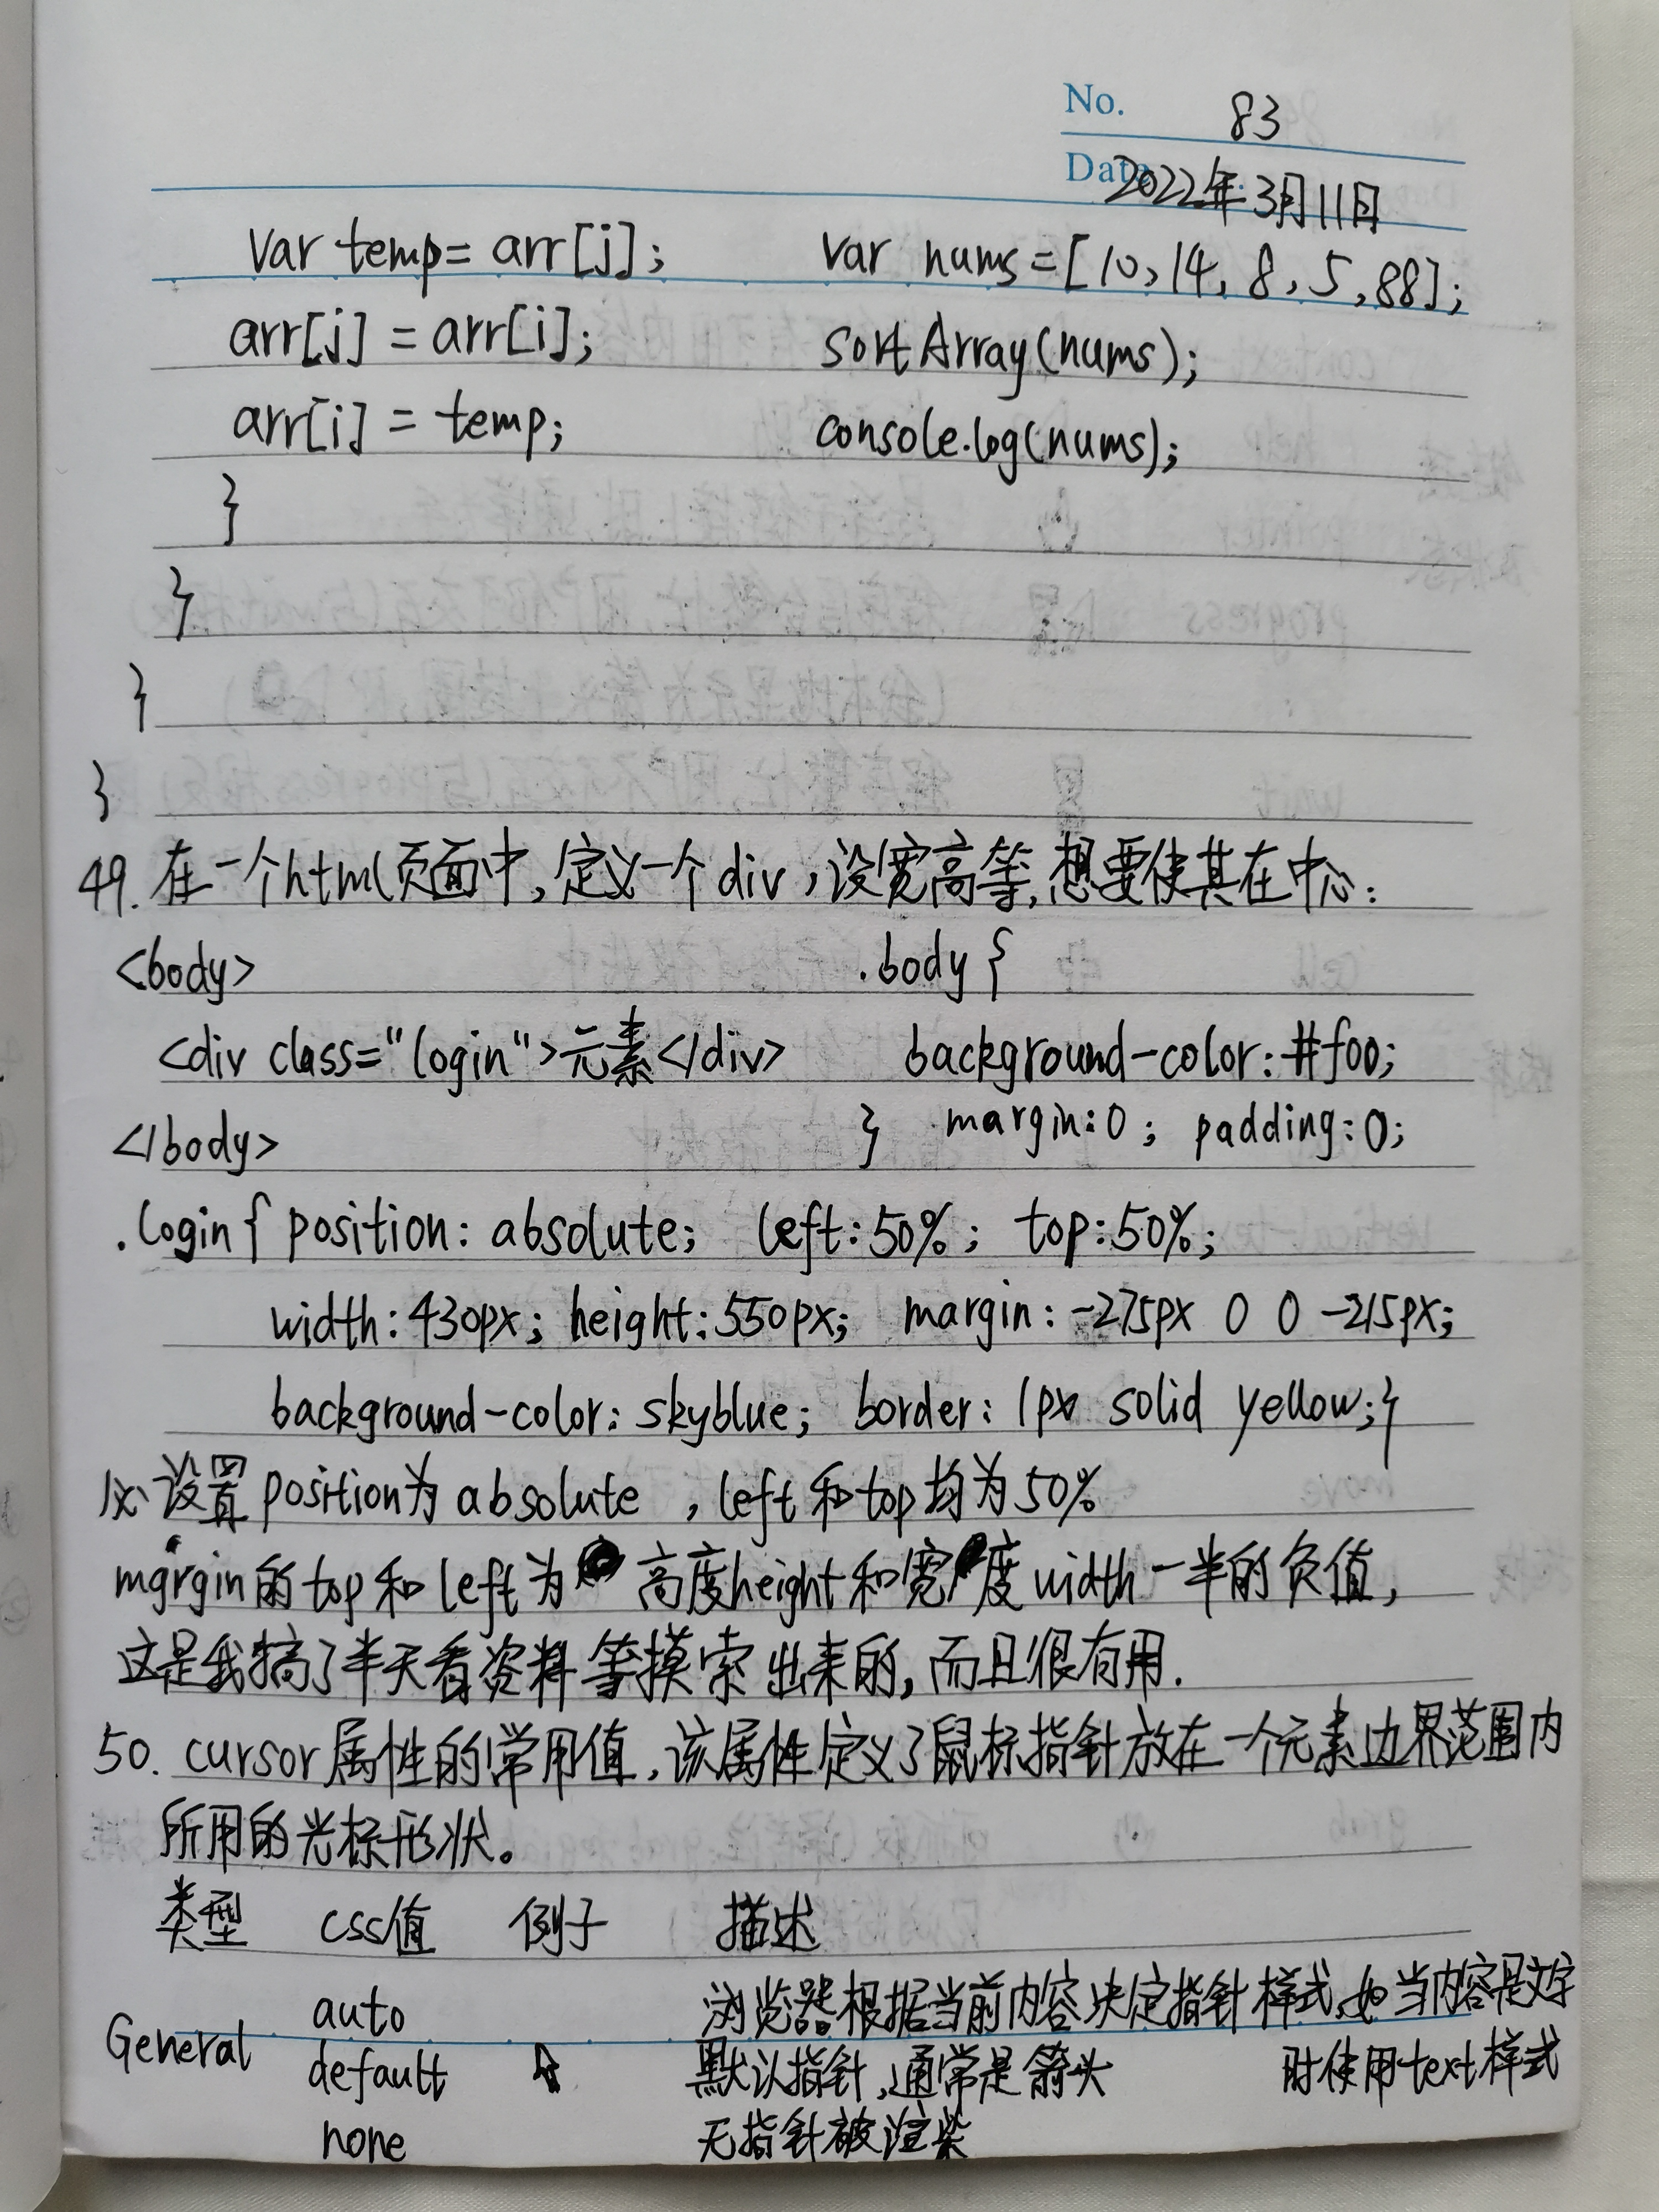 No. 83
Date 2022年3月11日
var temp = arr[j];    var nums = [10, 14, 8, 5, 88];
arr[j] = arr[i];    sortArray(nums);
arr[i] = temp;    console.log(nums);
}
}
}
}
49. 在一个html页面中,定义一个div,设宽高等,想要使其在中心:
<body>    .body {
<div class="login">元素</div>    background-color: #f00;
</body>    }    margin:0; padding:0;
.login { position: absolute; left:50%; top:50%;
width:430px; height:550px; margin: -275px 0 0 -215px;
background-color: skyblue; border: 1px solid yellow;}
设置position为absolute ,left和top均为50%
margin的top和left为高度height和宽度width一半的负值,
这是我搞了半天看资料等摸索出来的,而且很有用.
50. cursor属性的常用值,该属性定义了鼠标指针放在一个元素边界范围内
所用的光标形状。
类型 css值 例子 描述
auto 浏览器根据当前内容决定指针样式,如当内容是文字
General default 默认指针,通常是箭头 时使用text样式
none 无指针被渲染